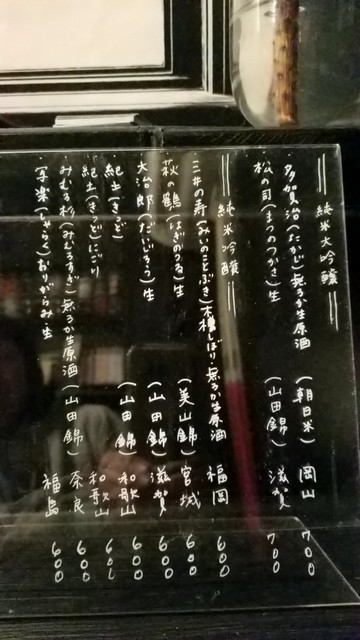 純米大吟醸
・多賀治(たかじ)無ろか生原酒(朝日米)岡山 700
・松の司(まつのつかさ)生(山田錦)滋賀 700
純米吟醸
・三井の寿(みいのことぶき)木槽しぼり無ろか生原酒 福岡 600
・萩の鶴(はぎのつる)生(美山錦)宮城 600
・大治郎(だいじろう)生(山田錦)滋賀 600
・紀土(きっど)(山田錦)和歌山 600
・紀土(きっど)にごり 和歌山 600
・みむろ杉(みむろすぎ)無ろか生原酒(山田錦)奈良 600
・写楽(しゃらく)おりがらみ・生 福島 600